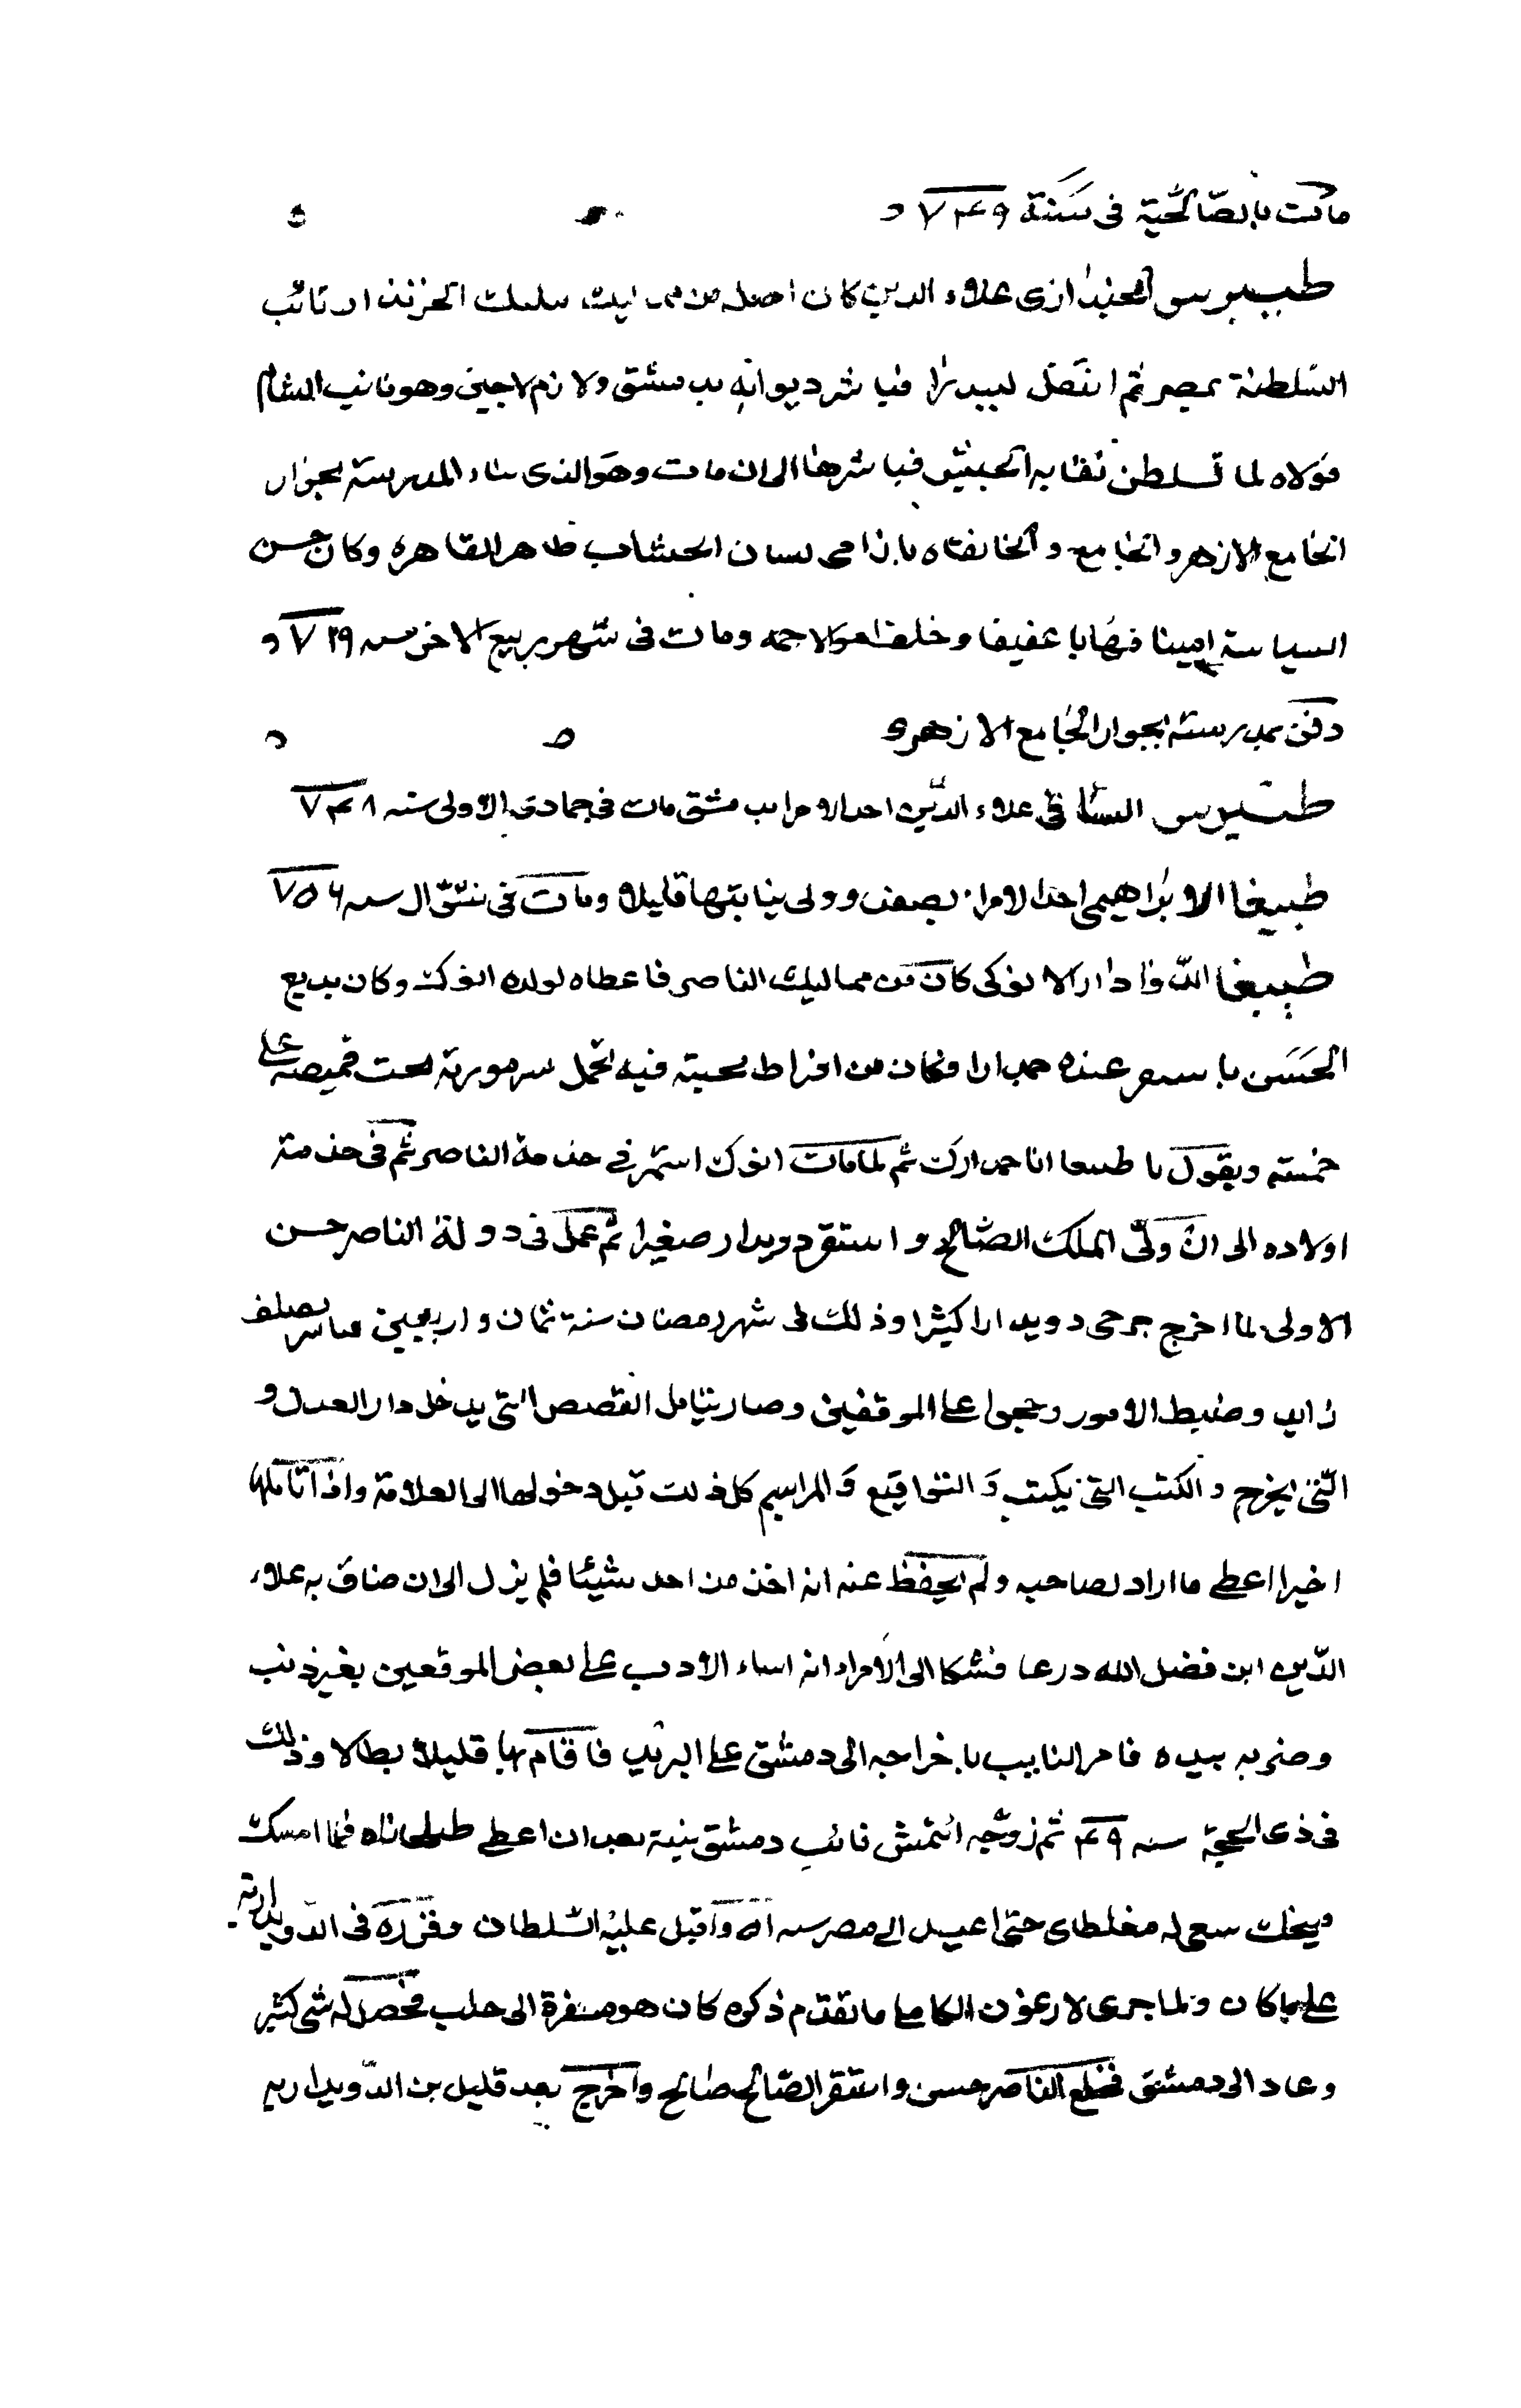 ماتت بالصالحية في سنة ٧٤٩
طيبرس الخندارى علاء الدين كان اصله من مماليك بيليك الخزندار نائب
السلطنة بمصر ثم انتقل لبيدرا فباشر ديوانه بدمشق ولازم لاجين وهو نايب الشام
فولاه لما تسلطن نقابة الجيش فباشرها الى ان مات وهو الذى بناء المدرسة بجوار
الجامع الازهر والجامع والخانقاه باراضى بستان الخشاب ظاهر القاهرة وكان حسن
السياسة امينا مهابا عفيفا وخلف اموالا جمه ومات فى شهر ربيع الاخر سنه ٧١٩ و
دفن بمدرسته بجوار الجامع الازهر
طيبرس علاء الدين احد الامراء بدمشق مات فى جمادى الاولى سنه ٧٤٨
طيبغا الابراهيمى احد الامراء بصفد وولى نيابتها قليلا ومات فى شوال سنه ٧٥٦
طيبغا الدوادار الانوكى كان من مماليك الناصر فاعطاه لولده انوك وكان بديع
الحسن عنده جمدارا فكان من افراط محبته فيه يحمل سرموزته تحت قميصه على
ويقول يا طيبغا انا جمدارك ثم لما مات انوك استمر فى خدمة الناصر ثم فى خدمة
اولاده الى ان ولى الملك الصالح واستقر دويدار صغيرا ثم عمل فى دولة الناصر حسن
الاولى لما اخرج جرجى دويدارا كبيرا وذلك فى شهر رمضان سنة ثمان واربعين فباشر بصلف
زايد وضبط الامور وحجر على الموقعين وصار يتامل القصص التى يدخل دار العدل و
التى يخرج والكتب التى يكتب والتواقيع والمراسيم كل ذلك قبل دخولها الى العلامة واذا تاملها
اخيرا اعطى ما اراد لصاحبه ولم يحفظ عنه انه اخذ من احد شيئا فلم يزل الى ان ضاق به علاء
الدين ابن فضل الله ذرعا فشكا الى الامراء انه اساء الادب على بعض الموقعين بغير ذنب
وضربه بيده فامر النايب باخراجه الى دمشق على البريد فاقام بها قليلا بطالا وذلك
فى ذى الحجة سنه ٤٩ ثم زوجه ايتمش نائب دمشق بنته بعد ان اعطى طبلخاناه فلما امسك
سعى له مغلطاى حتى اعيد الى مصر سنه ٥١ واقبل عليه السلطان وقرره فى الدويدارية
على ما كان ولما جرى لارغون الكاملى ما تقدم ذكره كان هو مسفرة الى حلب فحصل له شى كثير
وعاد الى دمشق فخلع الناصر حسن واستقر الصالح صالح واخرج بعد قليل من الدويداريه